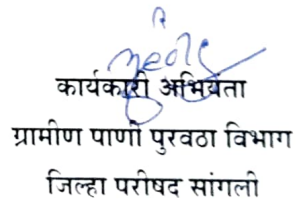 कार्यकारी अभियंता
ग्रामीण पाणी पुरवठा विभाग
जिल्हा परीषद सांगली